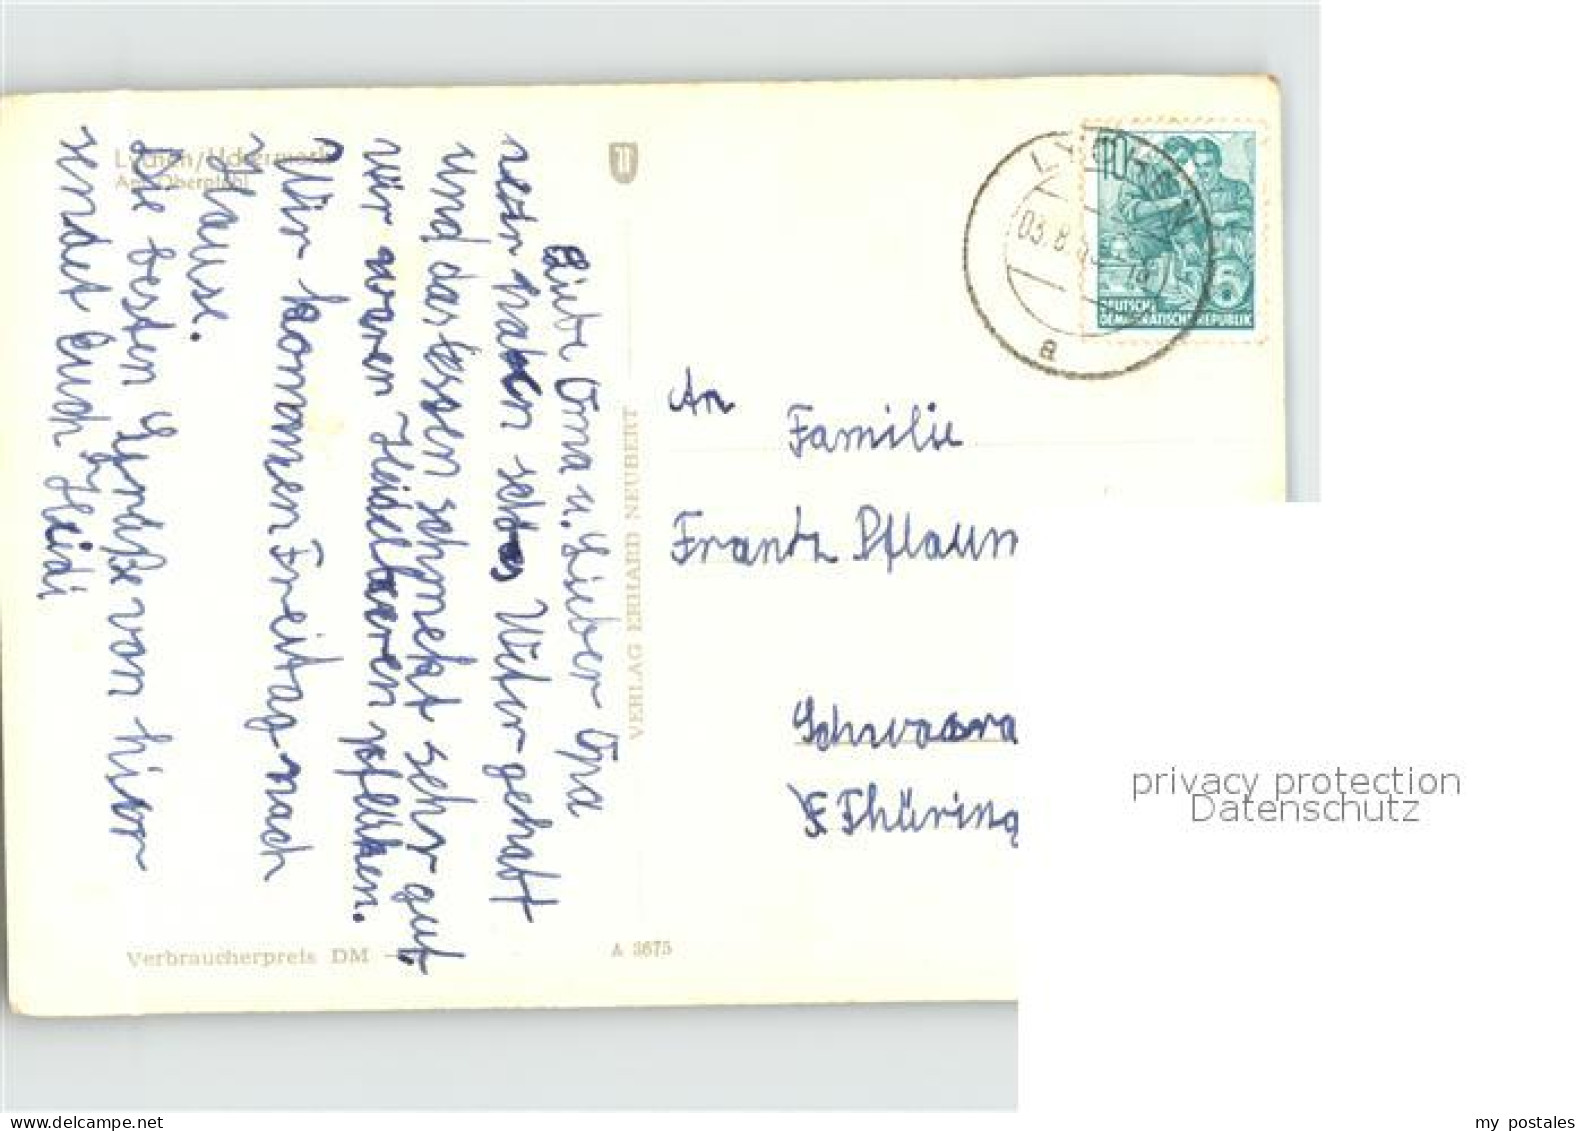 Lychen/Uckermark
Am Oberpfuhl
Liebe Oma u. Lieber Opa
wir haben schönes Weter gehabt
und das essen schmekt sehr gut.
wir waren Heidelberen pflüken.
Wir kommen Freitag nach
Hause.
Die besten Grüße von hir
sendet Euch Heidi
VERLAG ERHARD NEUBERT
Verbraucherpreis DM
A 3675
LYCHEN
03.8.
a
10
5
DEUTSCHE
DEMOKRATISCHE REPUBLIK
An
Familie
Frantz Pflaum
Schwaara
Thüring
privacy protection
Datenschutz
my postales